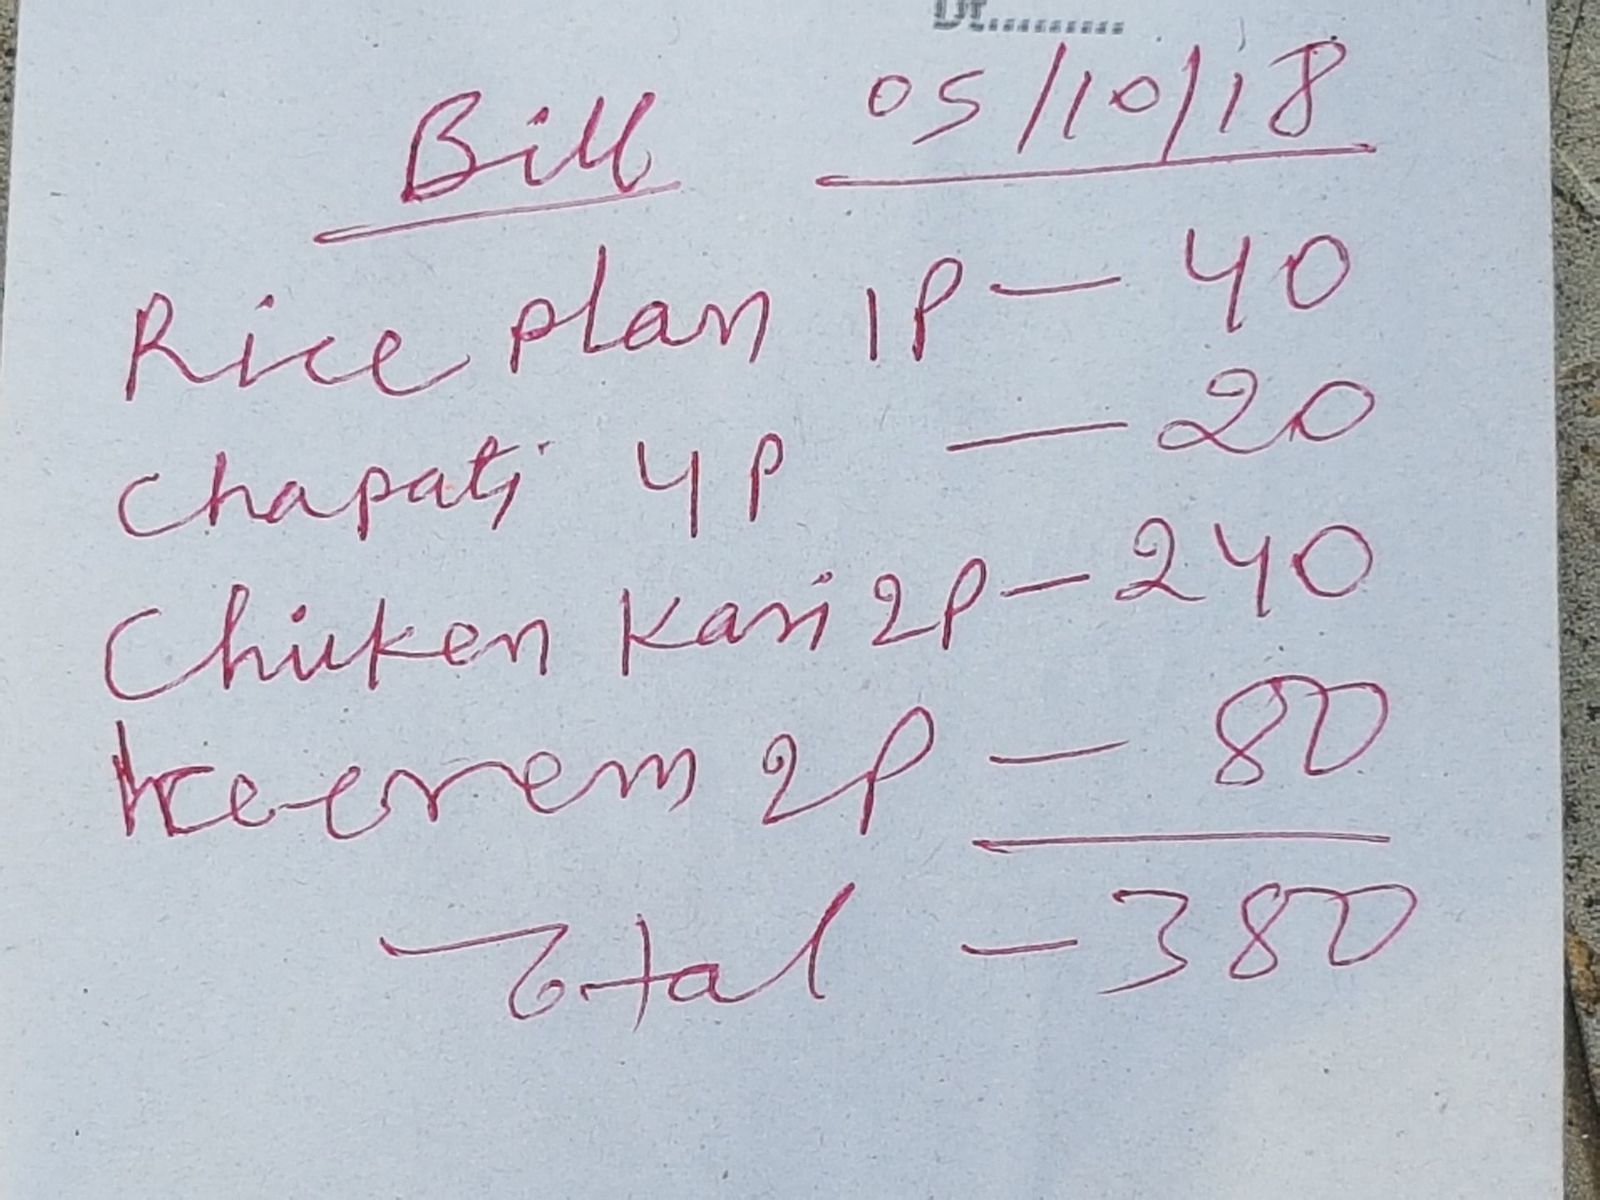 Dt..........
Bill 05/10/18
Rice plan 1P — 40
Chapati 4P — 20
Chicken Kari 2P — 240
Icecrem 2P — 80
Total — 380